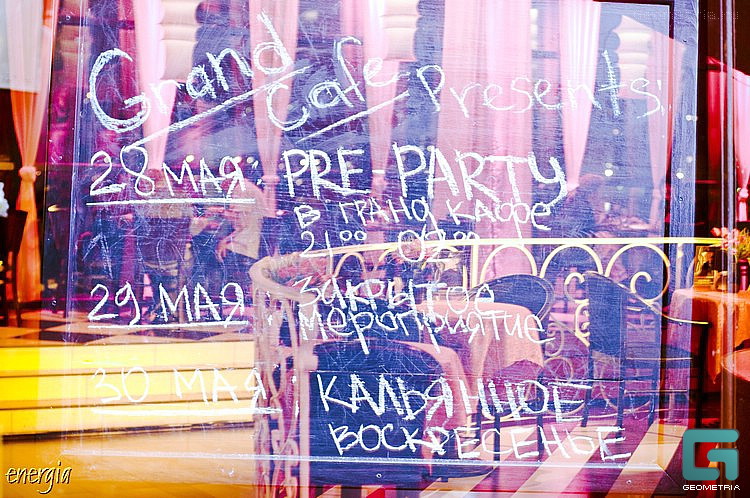 Grand Cafe Presents:
28 МАЯ PRE PARTY
В ГРАНД КАФЕ
21⁰⁰ 02⁰⁰
29 МАЯ ЗАКРЫТОЕ
МЕРОПРИЯТИЕ
30 МАЯ КАЛЬЯННОЕ
ВОСКРЕСЕНЬЕ
energia
GEOMETRIA